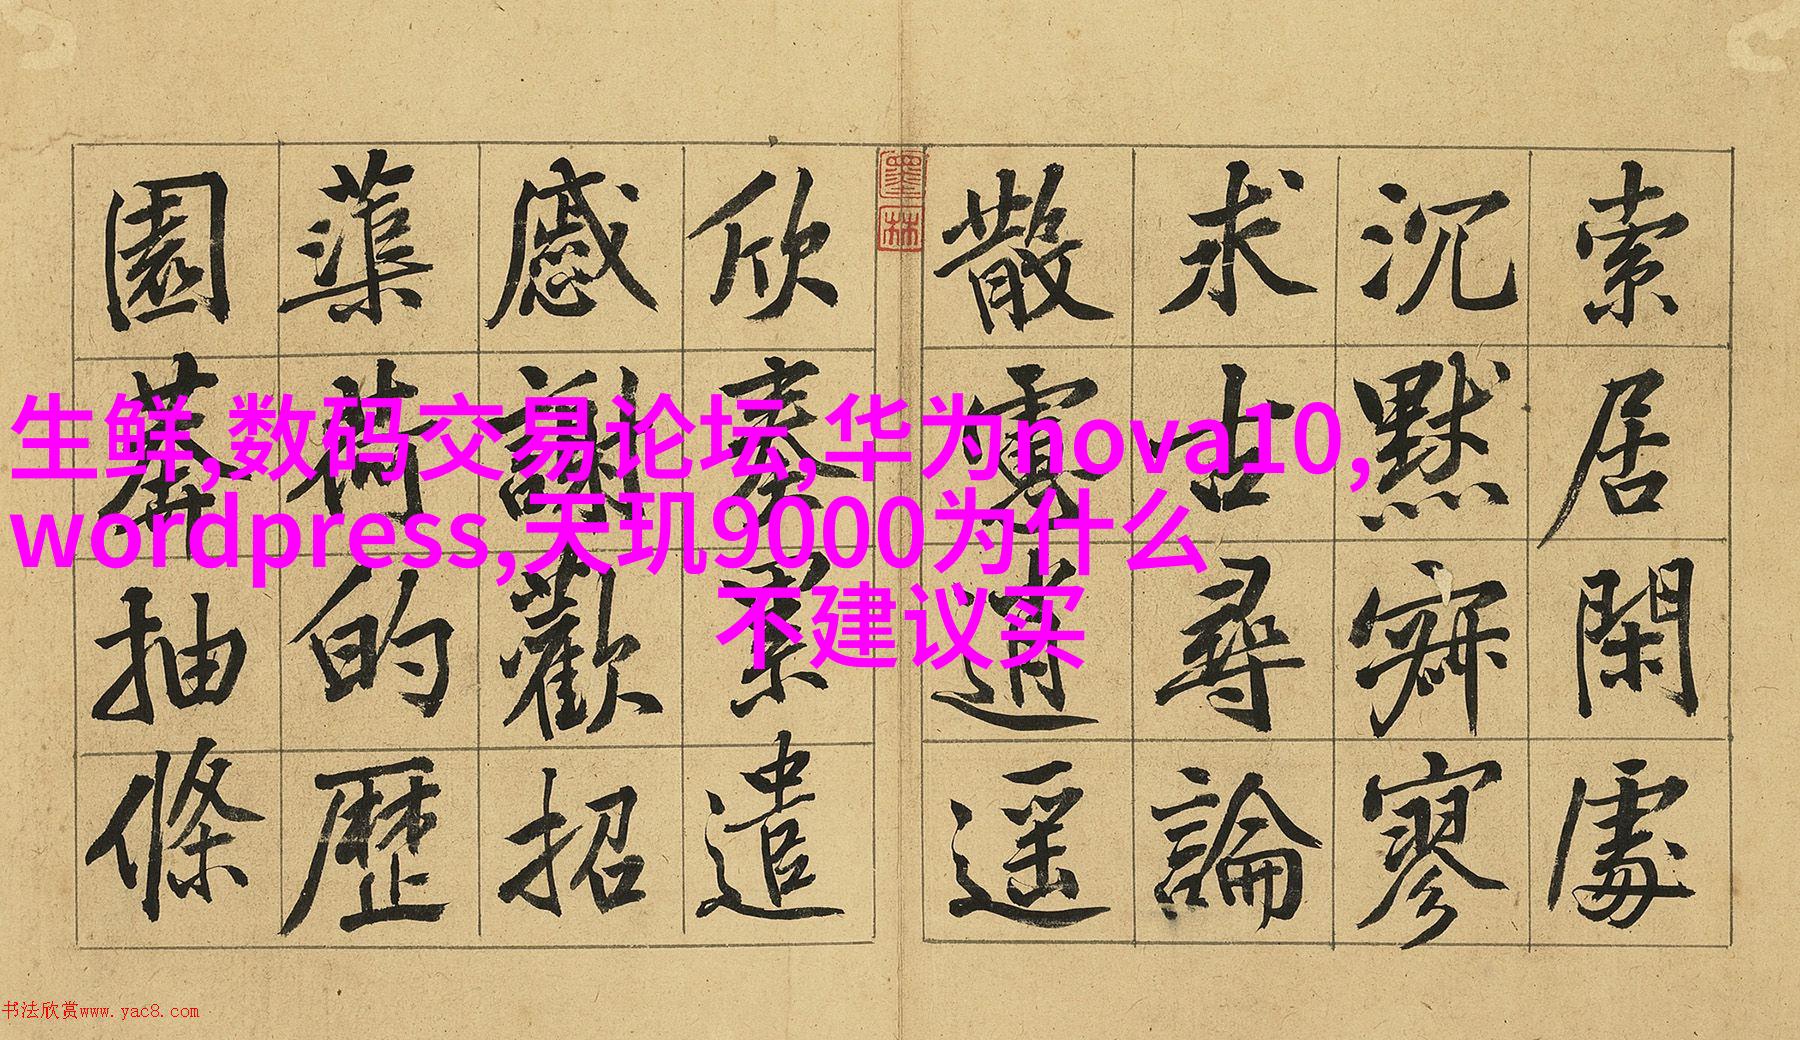 索居閑處
沉默寂寥
求古尋論
散慮逍遥
欣奏累遣
慼謝歡招
蕖荷的歷
園莽抽條
墨林
生鲜,数码交易论坛,华为nova10,
wordpress,天玑9000为什么
不建议买
书法欣赏www.yac8.com